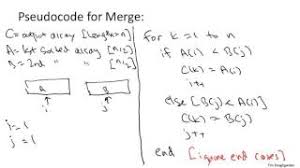 Pseudocode for Merge:
C = output array [length = n]
A = 1st sorted array [n/2]
B = 2nd " " [n/2]
A B
i j
i = 1
j = 1
for k = 1 to n
if A(i) < B(j)
C(k) = A(i)
i++
else [B(j) < A(i)]
C(k) = B(j)
j++
end [ignore end cases]